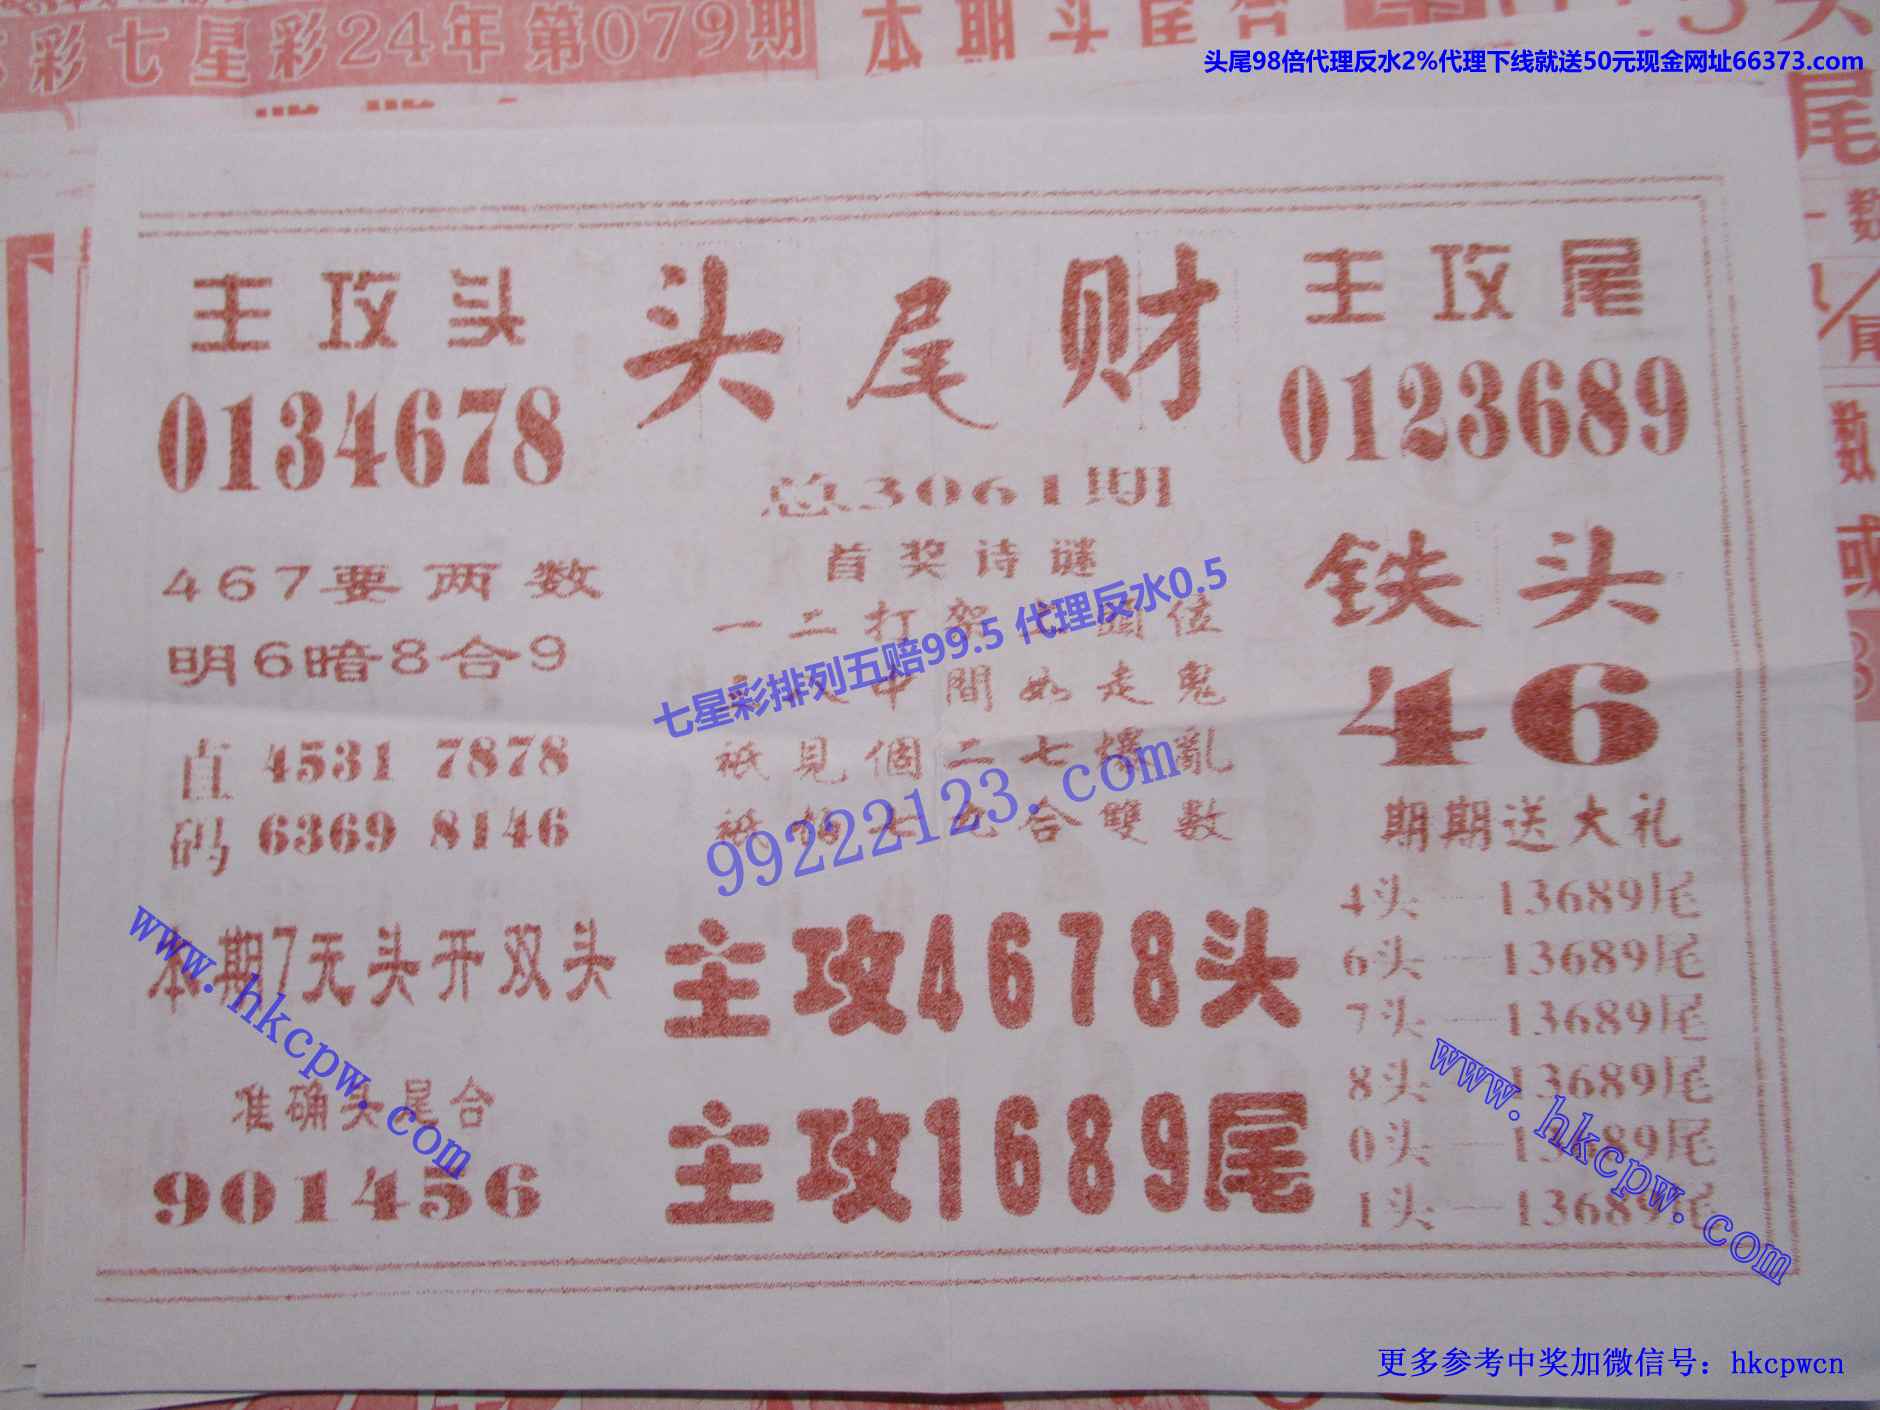 彩七星彩24年第079期
本期头尾合
头尾98倍代理反水2%代理下线就送50元现金网址66373.com
尾
数
尾
数
或
主攻头
0134678
头尾财
主攻尾
0123689
总3061期
首奖诗谜
一二打架 位
中間如走鬼
祇見個二七爆亂
祇 合雙數
七星彩排列五赔99.5 代理反水0.5
99222123.com
467要两数
明6暗8合9
直 4531 7878
码 6369 8146
本期7无头开双头
www.hkcpw.com
准确头尾合
901456
主攻4678头
主攻1689尾
铁头
46
期期送大礼
4头—13689尾
6头—13689尾
7头—13689尾
8头—13689尾
0头—13689尾
1头—13689尾
www.hkcpw.com
更多参考中奖加微信号：hkcpwcn